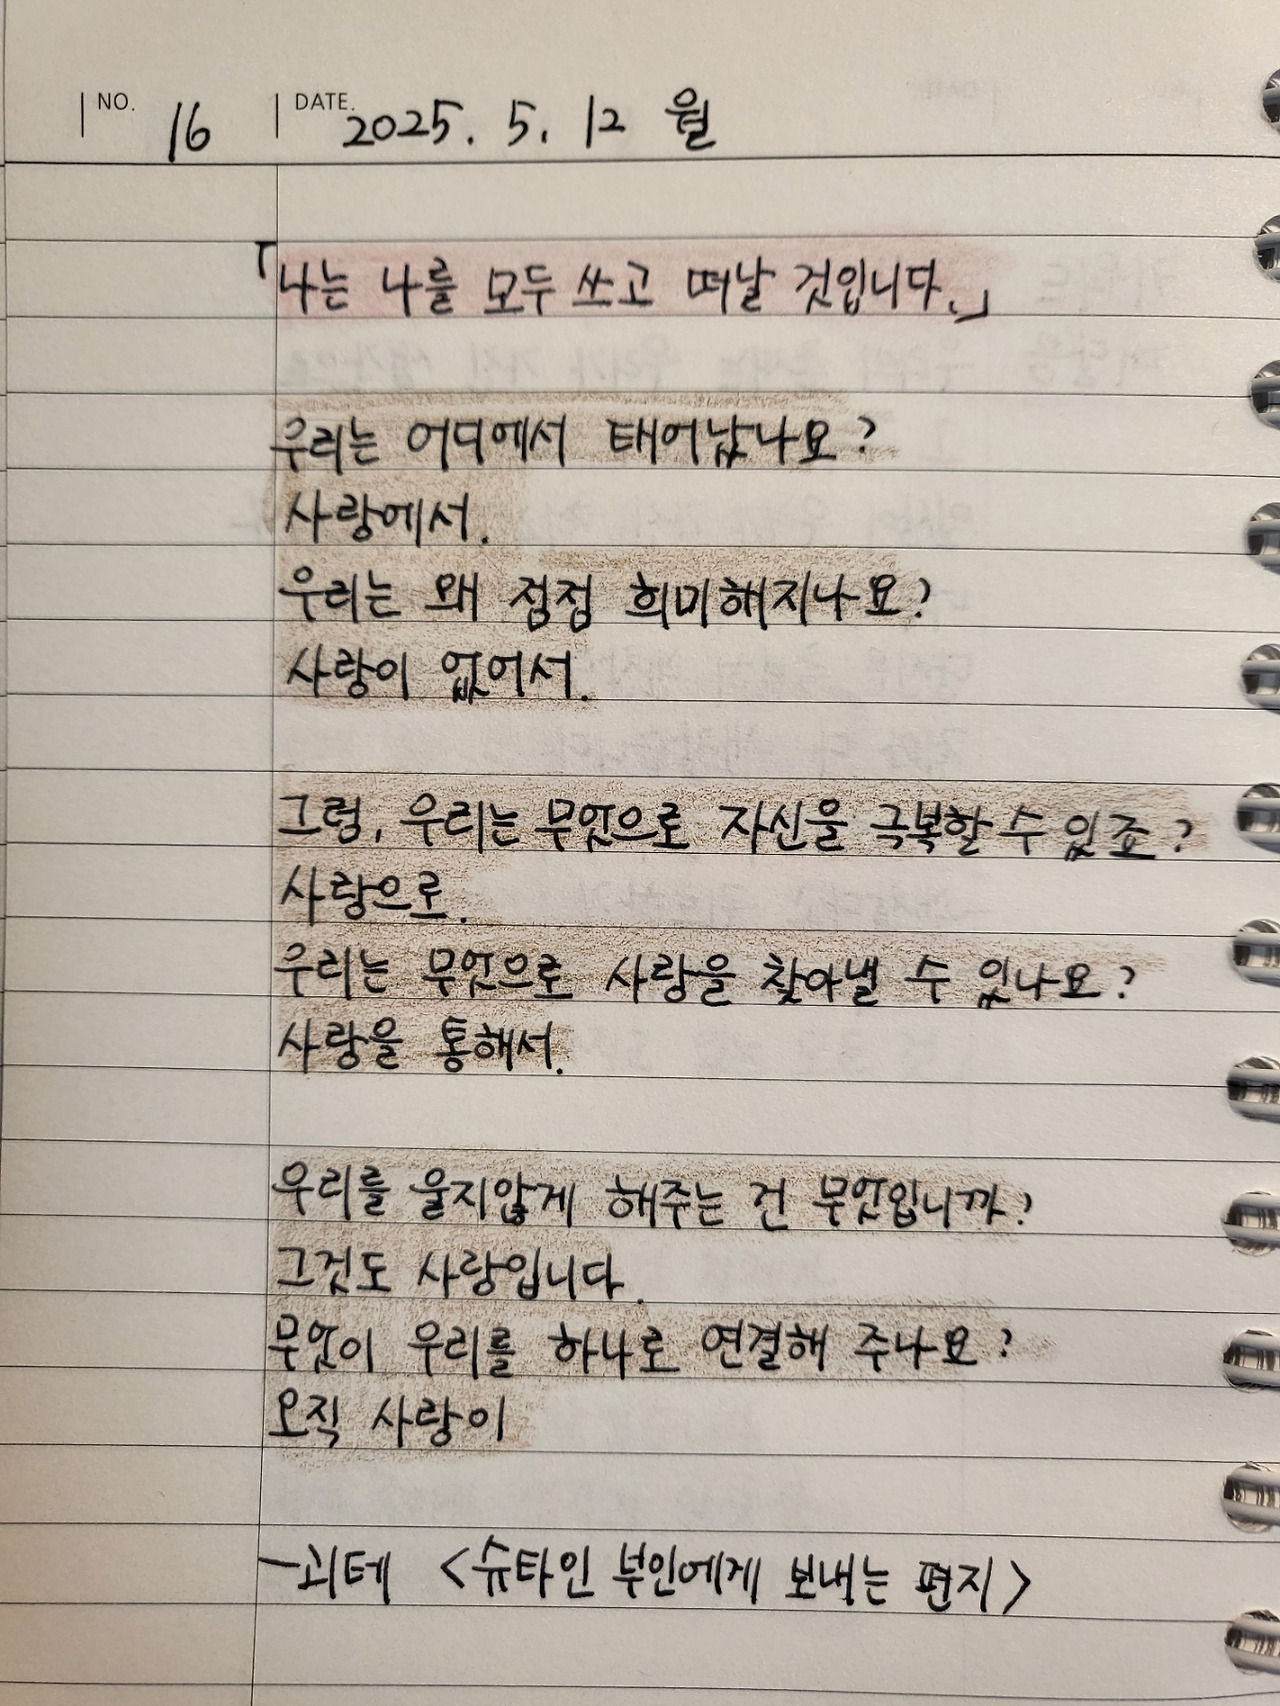 NO. 16 DATE. 2025. 5. 12 월
「나는 나를 모두 쓰고 떠날 것입니다.」
우리는 어디에서 태어났나요?
사랑에서.
우리는 왜 점점 희미해지나요?
사랑이 없어서.
그럼, 우리는 무엇으로 자신을 극복할 수 있죠?
사랑으로.
우리는 무엇으로 사랑을 찾아낼 수 있나요?
사랑을 통해서.
우리를 울지않게 해주는 건 무엇입니까?
그것도 사랑입니다.
무엇이 우리를 하나로 연결해 주나요?
오직 사랑이
-괴테 <슈타인 부인에게 보내는 편지>